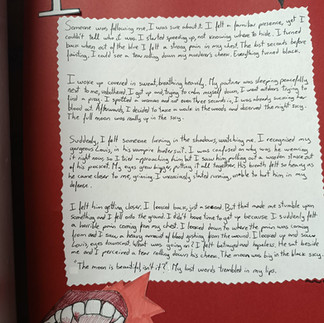 Someone was following me, I was sure about it. I felt a familiar presence, yet I
couldn't tell who it was. I started speeding up, not knowing where to hide. I turned
back when out of the blue I felt a strong pain in my chest. The last seconds before
fainting, I could see a tear rolling down my murderer's cheek. Everything turned black.
I woke up covered in sweat, breathing heavily. My partner was sleeping peacefully
next to me, undisturbed. I got up and, trying to calm myself down, I went outdoors trying to
find a prey. I spotted a woman and not even three seconds in, I was already tearing her
blood out. Afterwards, I decided to take a walk in the woods and observed the night sky.
The full moon was really up in the sky.
Suddenly, I felt someone in the shadows, watching me. I recognised my
gorgeous Louis, in his vampire hunter suit. I was confused as why was he wearing
it right now so I tried approaching him but I saw him pulling out a wooden stake out
of his pocket. My eyes grew bigger, putting it all together. His breath felt so heavy as
he came closer to me, grinning. I started running, unable to hurt him in my
defense.
I felt him getting closer. I looked back, just a second. But that made me stumble upon
something and I fell onto the ground. I didn't have time to get up because I suddenly felt
a horrible pain coming from my chest. I looked down to where the pain was coming
from and I saw a heavy amount of blood gushing from the wound. I looked up and saw
Louis' eyes What was going on? I felt betrayed and hopeless. He sat beside
me and I perceived a tear rolling down his cheek. The moon was big in the black sky.
"The moon is beautiful isn't it?". My last words trembled in my lips.